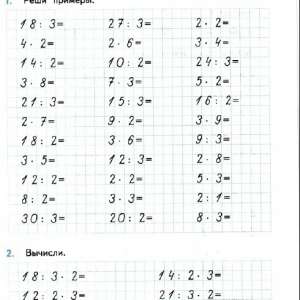 1. Реши примеры.
18:3= 27:3= 2·2=
4·2= 2·6= 3·4=
14:2= 10:2= 24:3=
3·8= 7·3= 5·2=
21:3= 15:3= 16:2=
2·7= 9·2= 3·9=
18:2= 3·6= 9:3=
3·5= 12:3= 2·8=
12:2= 2·2= 5·3=
8:2= 3·3= 2:1=
30:3= 20:2= 8·3=
2. Вычисли.
18:3·2= 14:2·3=
12:2·3= 21:3·2=